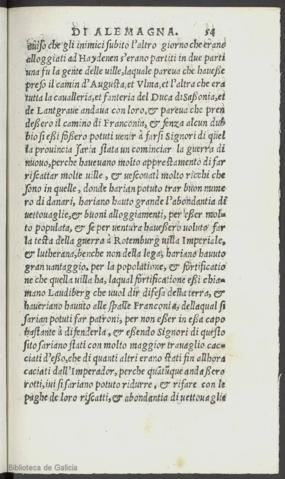 DI ALEMAGNA. 54
auiso che gli inimici subito l'altro giorno che erano
alloggiati ad Haydenen s'erano partiti in due parti
una fu la gente delle uille, laquale pareua che hauesse
preso il camin d'Augusta, et Vlma, et l'altra che era
tutta la cauallleria, et fanteria del Duca di Sassonia, et
de Lantgraue andaua con loro, & pareua che pren
dessero il camino di Franconia, & senza alcun dub
bio si essi fossero potuti uenir à farsi Signori di quel
la prouincia saria stata un cominciar la guerra di
nuouo, perche haueuano molto apprestamento di far
riscattar molte uille, & uescouati molto ricchi che
sono in quelle, donde harian potuto trar buon nume
ro di danari, hariano hauto grande l'abondantia di
vettouaglie, et buoni alloggiamenti, per esser mol-
to populata, & se per uentura hauessero uoluto far
la testa della guerra à Rotemburg uilla Imperiale,
& lutherana, benche non della lega, hariano hauuto
gran uantaggio, per la popolatione, & fortificatio
ne che quella uilla ha, laqual fortificatione essi chia-
mano Landtberg che uuol dir difesa della terra, &
haueriano hauuto alle spalle Franconia, dellaqual si
sarian potuti far patroni, per non esser in essa capo
bastante à difenderla, & essendo Signori di questo
sito sariano stati con molto maggior trauaglio cac-
ciati d'esso, che di quanti altri erano stati fin allhora
caciati dall'Imperador, perche quãtũque andassero
rotti, iui si sariano potuto ridurre, & rifare con le
paghe de loro riscatti, & abondantia di uettouaglie
Biblioteca de Galicia